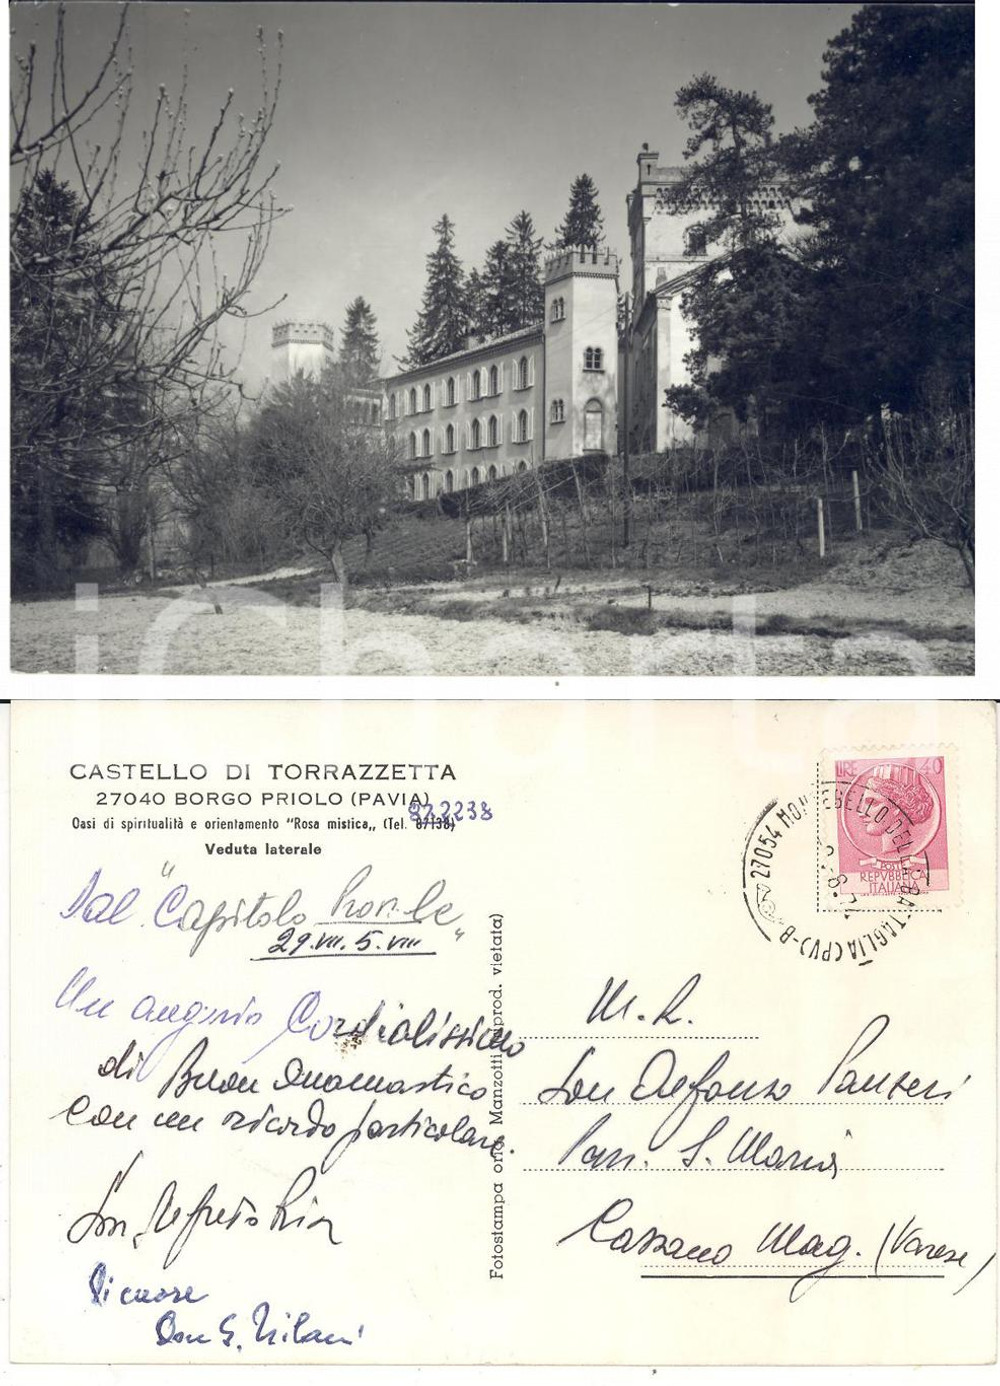 CASTELLO DI TORRAZZETTA
27040 BORGO PRIOLO (PAVIA)
872238
Oasi di spiritualità e orientamento "Rosa mistica„ (Tel. 87138)
Veduta laterale
Dal "Capitolo
29.VII. 5.VIII „
Un augurio Cordialissimo
di Buon Onomastico
con un ricordo particolare.
Don Alfredo
Di cuore
Don G. Milani
Fotostampa orig. Manzotti (riprod. vietata)
LIRE 40
POSTE
REPVBBLICA
ITALIANA
27054 MONTEBELLO DELLA BATTAGLIA (PV)-B
M. R.
Don Alfonso Panseri
Parr. S. Maria
Cassano Mag. (Varese)
iCharta